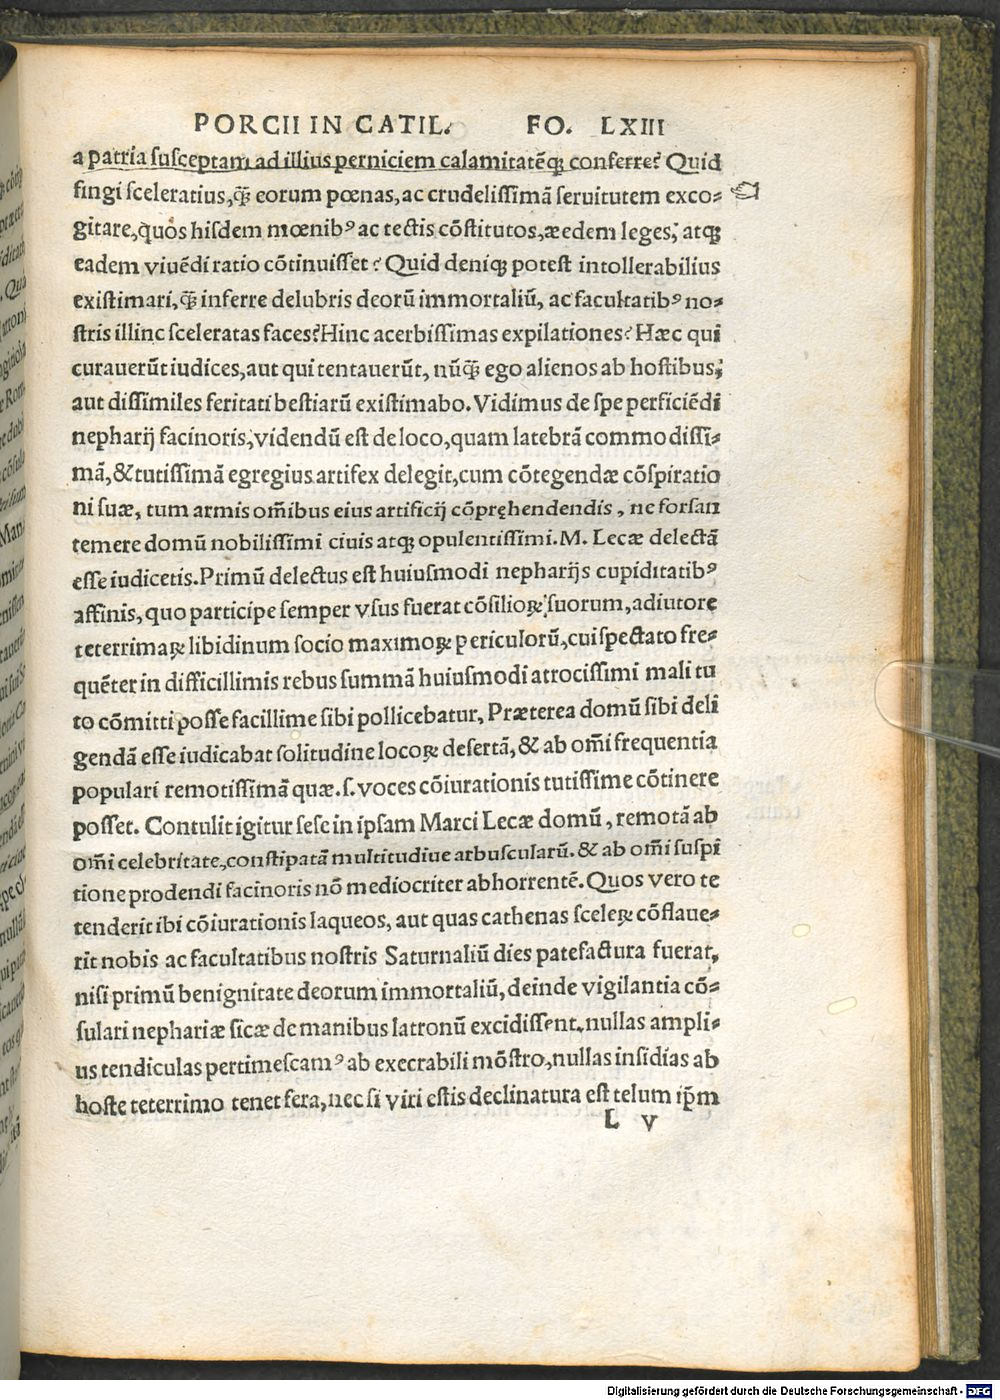 PORCII IN CATIL. FO. LXIII
a patria susceptam ad illius perniciem calamitatēq̃ conferre? Quid
fingi sceleratius, q̃ eorum pœnas, ac crudelissimā seruitutem exco⸗
gitare, quos hisdem mœnibꝰ ac tectis cōstitutos, æedem leges, atq̃
eadem viuēdi ratio cōtinuisset? Quid deniq̃ potest intollerabilius
existimari, q̃ inferre delubris deorū immortaliū, ac facultatibꝰ no⸗
stris illinc sceleratas faces? Hinc acerbissimas expilationes? Hæc qui
curauerūt iudices, aut qui tentauerūt, nūq̃ ego alienos ab hostibus,
aut dissimiles feritati bestiarū existimabo. Vidimus de spe perficiēdi
nepharij facinoris, videndū est de loco, quam latebrā commodissi⸗
mā, & tutissimā egregius artifex delegit, cum cōtegendæ cōspiratio
ni suæ, tum armis om̄ibus eius artificij cōpręhendendis, ne forsan
temere domū nobilissimi ciuis atq̃ opulentissimi. M. Lecæ delectā
esse iudicetis. Primū delectus est huiusmodi nepharijs cupiditatibꝰ
affinis, quo participe semper vsus fuerat cōsilioꝝ suorum, adiutore
teterrimaꝝ libidinum socio maximoꝝ periculorū, cui spectato fre⸗
quēter in difficillimis rebus summā huiusmodi atrocissimi mali tu
to cōmitti posse facillime sibi pollicebatur, Præterea domū sibi deli
gendā esse iudicabat solitudine locoꝝ desertā, & ab om̄i frequentia
populari remotissimā quæ .s. voces cōiurationis tutissime cōtinere
posset. Contulit igitur sese in ipsam Marci Lecæ domū, remotā ab
om̄i celebritate, constipatā multitudiue arbuscularū. & ab om̄i suspi
tione prodendi facinoris nō mediocriter abhorrentē. Quos vero te
tenderit ibi cōiurationis laqueos, aut quas cathenas sceleꝝ cōflaue⸗
rit nobis ac facultatibus nostris Saturnaliū dies patefactura fuerat,
nisi primū benignitate deorum immortaliū, deinde vigilantia cō⸗
sulari nephariæ sicæ de manibus latronū excidissent, nullas ampli⸗
us tendiculas pertimescamꝰ ab execrabili mōstro, nullas insidias ab
hoste teterrimo tenet fera, nec si viri estis declinatura est telum ip̄m
L v
Digitalisierung gefördert durch die Deutsche Forschungsgemeinschaft - DFG